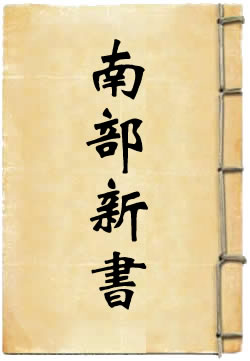 南部新書